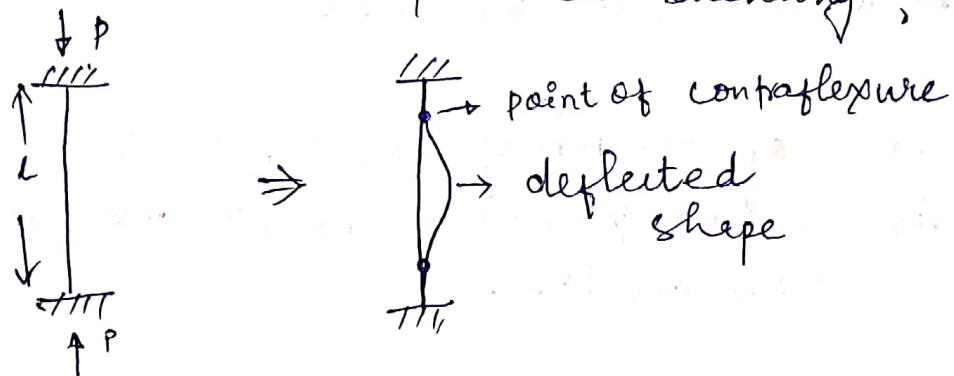 P
point of contraflexure
L
⇒
→ deflected
shape
P